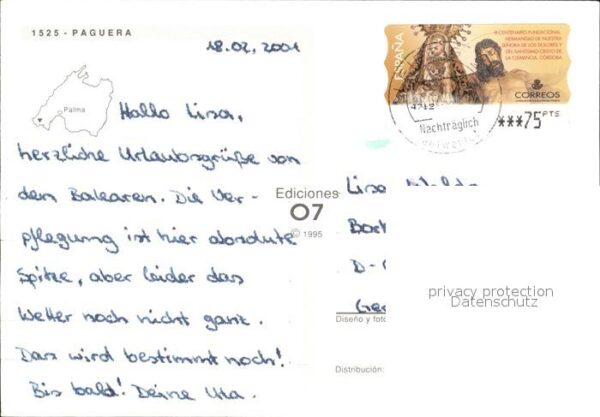 1525 - PAGUERA
18.02.2001
Palma
Hallo Lisa,
herzliche Urlaubsgrüße von
den Balearen. Die Ver-
pflegung ist hier absolute
Spitze, aber leider das
Wetter noch nicht ganz.
Das wird bestimmt noch!
Bis bald! Deine Uta.
Ediciones
07
© 1995
ESPAÑA
III CENTENARIO FUNDACIONAL
HERMANDAD DE NUESTRA
SEÑORA DE LOS DOLORES Y
DEL SANTISIMO CRISTO DE
LA CLEMENCIA. CÓRDOBA
CORREOS
***75 PTS
Nachträglich
entwertet
Lisa
D-
Ge
Diseño y foto
Distribución:
privacy protection
Datenschutz